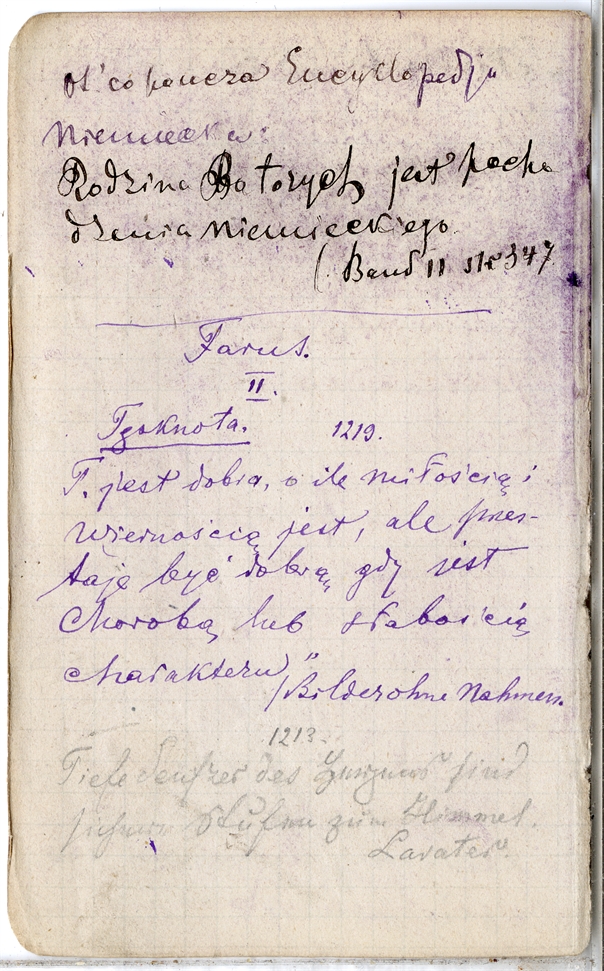 Encyclopedja
Niemiecka:
Rodzina Batorych jest pocho
dzenia niemieckiego
( Band 11 str 347
Farus.
II.
Tęsknota. 1219.
T. jest dobra, o ile miłością i
wiernością jest, ale przes-
taje być dobrą, gdy jest
chorobą lub słabością
charakteru"
/Bilder ohne Rahmen.
1213.
Tiefe Seufzer des Herzens sind
sichere Stufen zum Himmel.
Lavater.